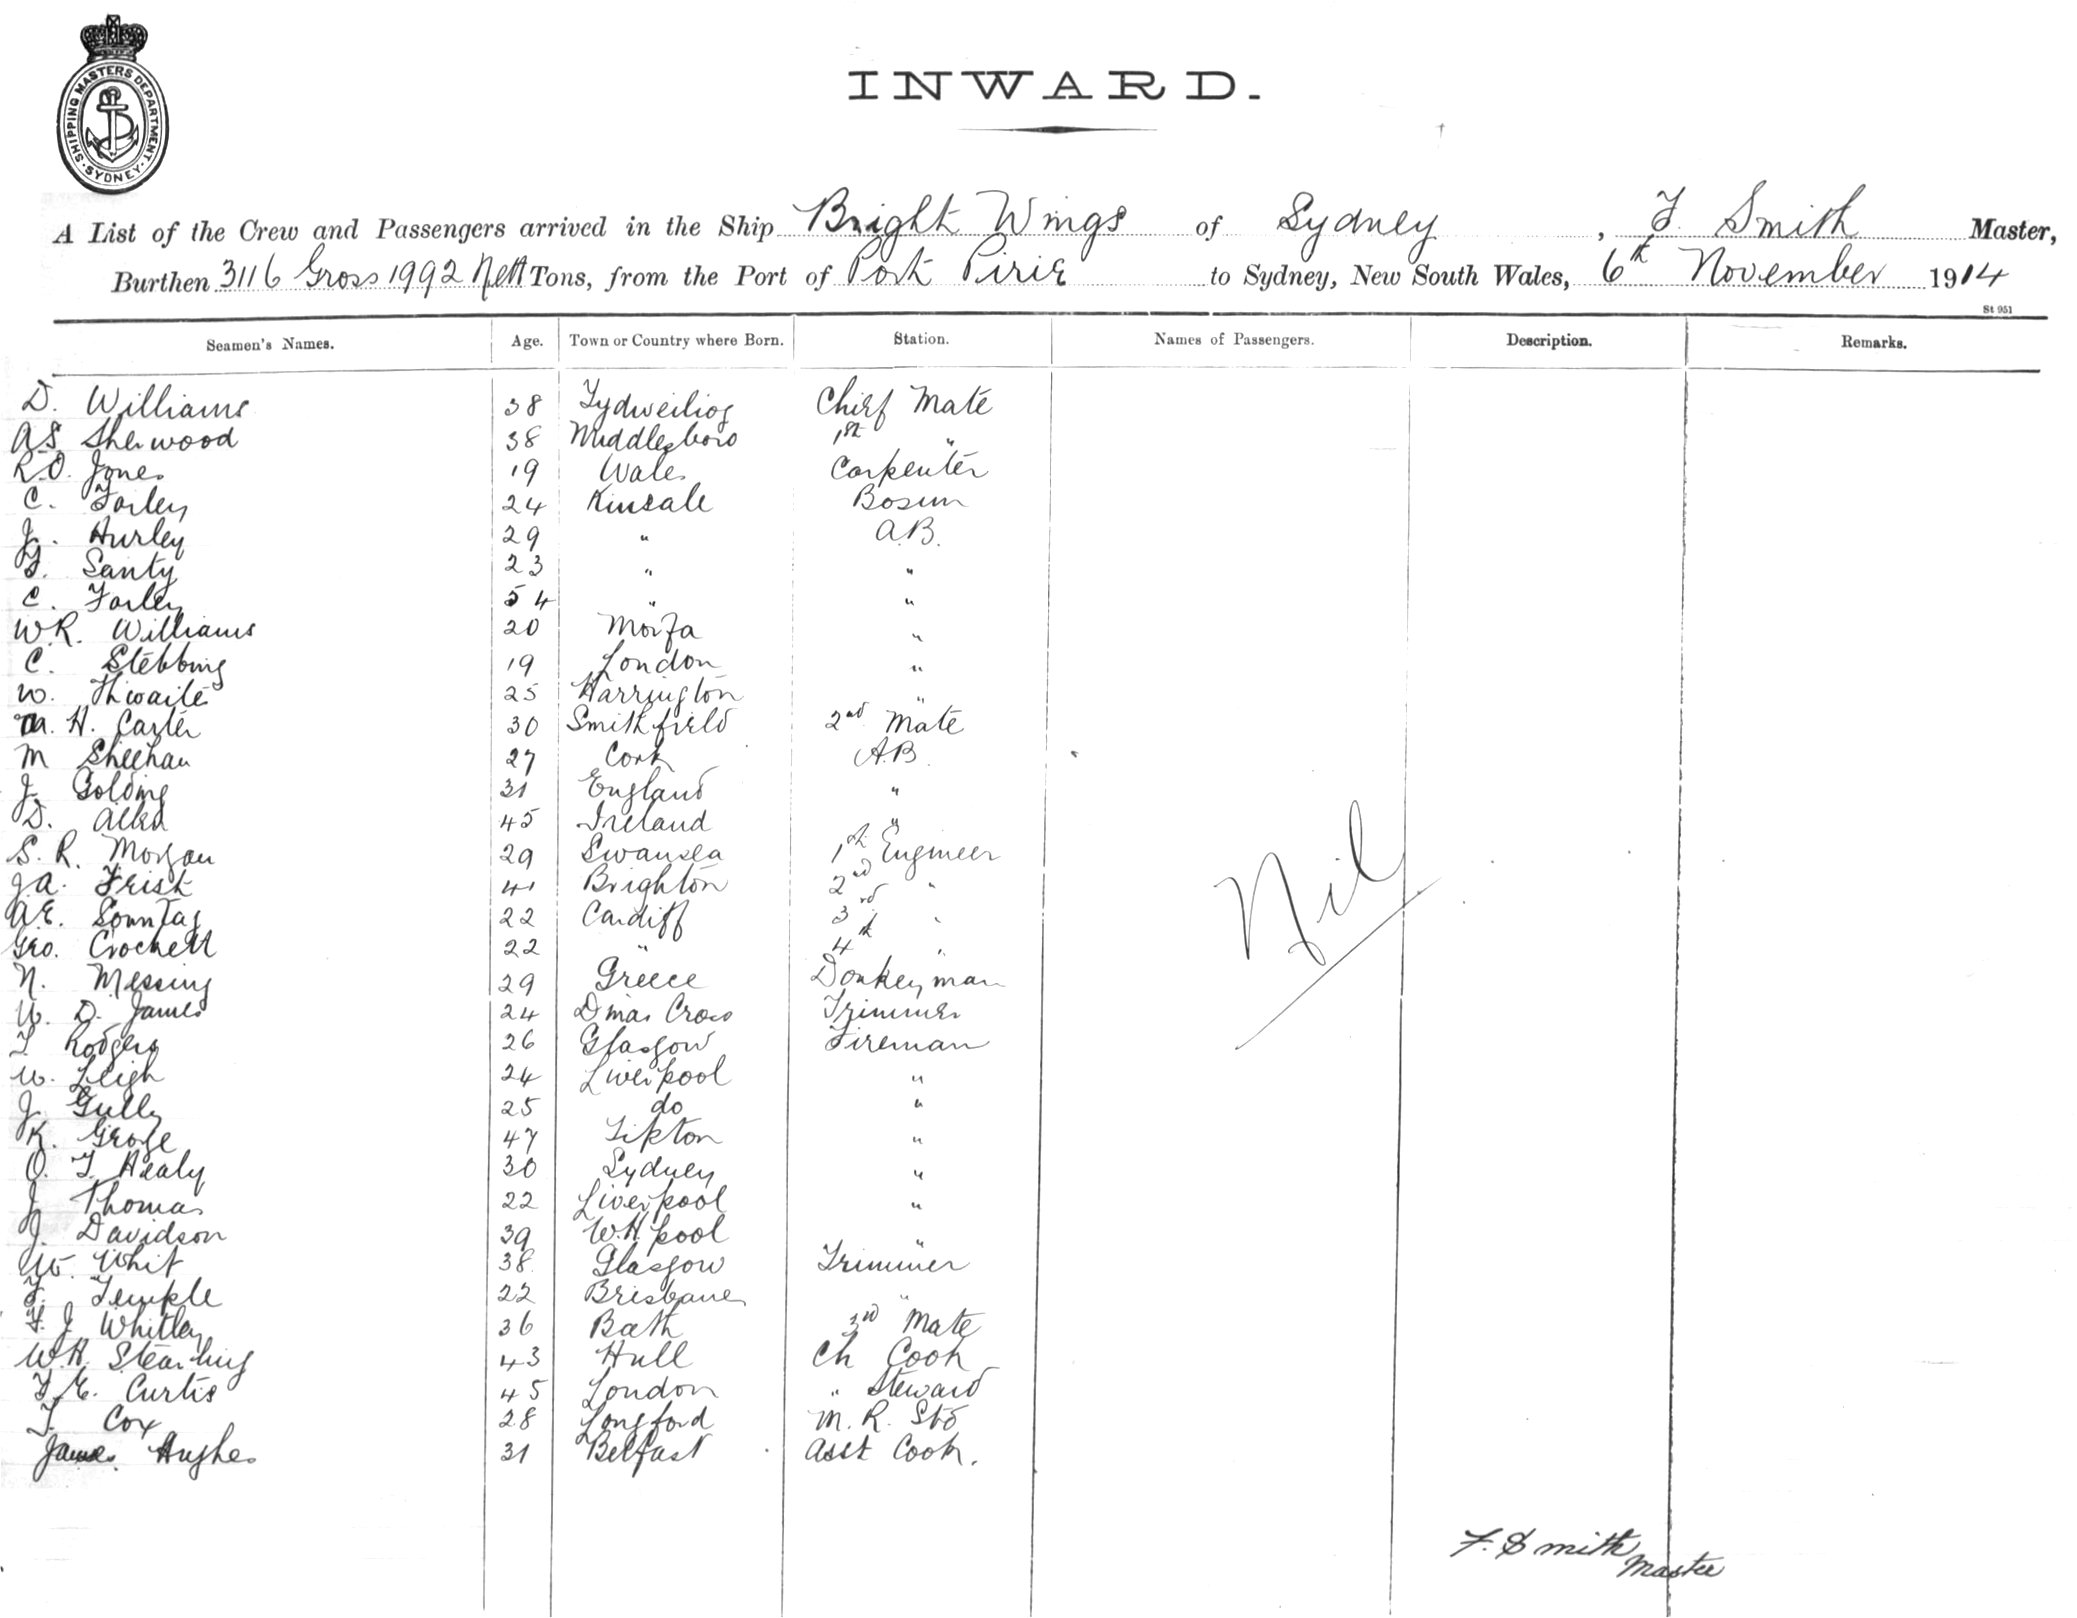 SHIPPING MASTERS DEPARTMENT
SYDNEY
INWARD.
A List of the Crew and Passengers arrived in the Ship Bright Wings of Sydney, F. Smith Master,
Burthen 3116 Gross 1992 Nett Tons, from the Port of Port Pirie to Sydney, New South Wales, 6th November 1914
St 951
Seamen's Names. Age. Town or Country where Born. Station. Names of Passengers. Description. Remarks.
D. Williams 38 Chief Mate
A S Sherwood 38 Middlesboro 1st "
R.O. Jones 19 Wales Carpenter
C. Farley 24 Kinsale Bosun
J. Hurley 29 " A.B.
Santy 23 " "
C. Farley 54 " "
W.R. Williams 20 Morfa "
C. Stebbing 19 London "
W. Thwaite 25 Harrington "
M. H. Carter 30 Smithfield 2nd Mate
M Sheehan 27 Cork A.B.
J. Golding 31 England "
D. Allen 45 Ireland "
S. R. Morgan 29 Swansea 1st Engineer
J.A. Frist 41 Brighton 2nd "
A.E. Sonntag 22 Cardiff 3rd "
Geo. Crockett 22 " 4th "
N. Messing 29 Greece Donkeyman
W. D. James 24 Dinas Cross Trimmer
T Rodgers 26 Glasgow Fireman
W. Leigh 24 Liverpool "
J. Gully 25 do "
K. 47 Tipton "
O. F. Healy 30 Sydney "
J. Thomas 22 Liverpool "
J. Davidson 39 W.H.pool "
W. Whit 38 Glasgow Trimmer
F. Temple 22 Brisbane "
F. J Whitley 36 Bath 3rd Mate
W.H. Stearling 43 Hull Ch Cook
F.E. Curtis 45 London " Steward
T. Cox 28 Longford M. R. Std
James Hughes 31 Belfast Asst Cook.
Nil
F. Smith
Master